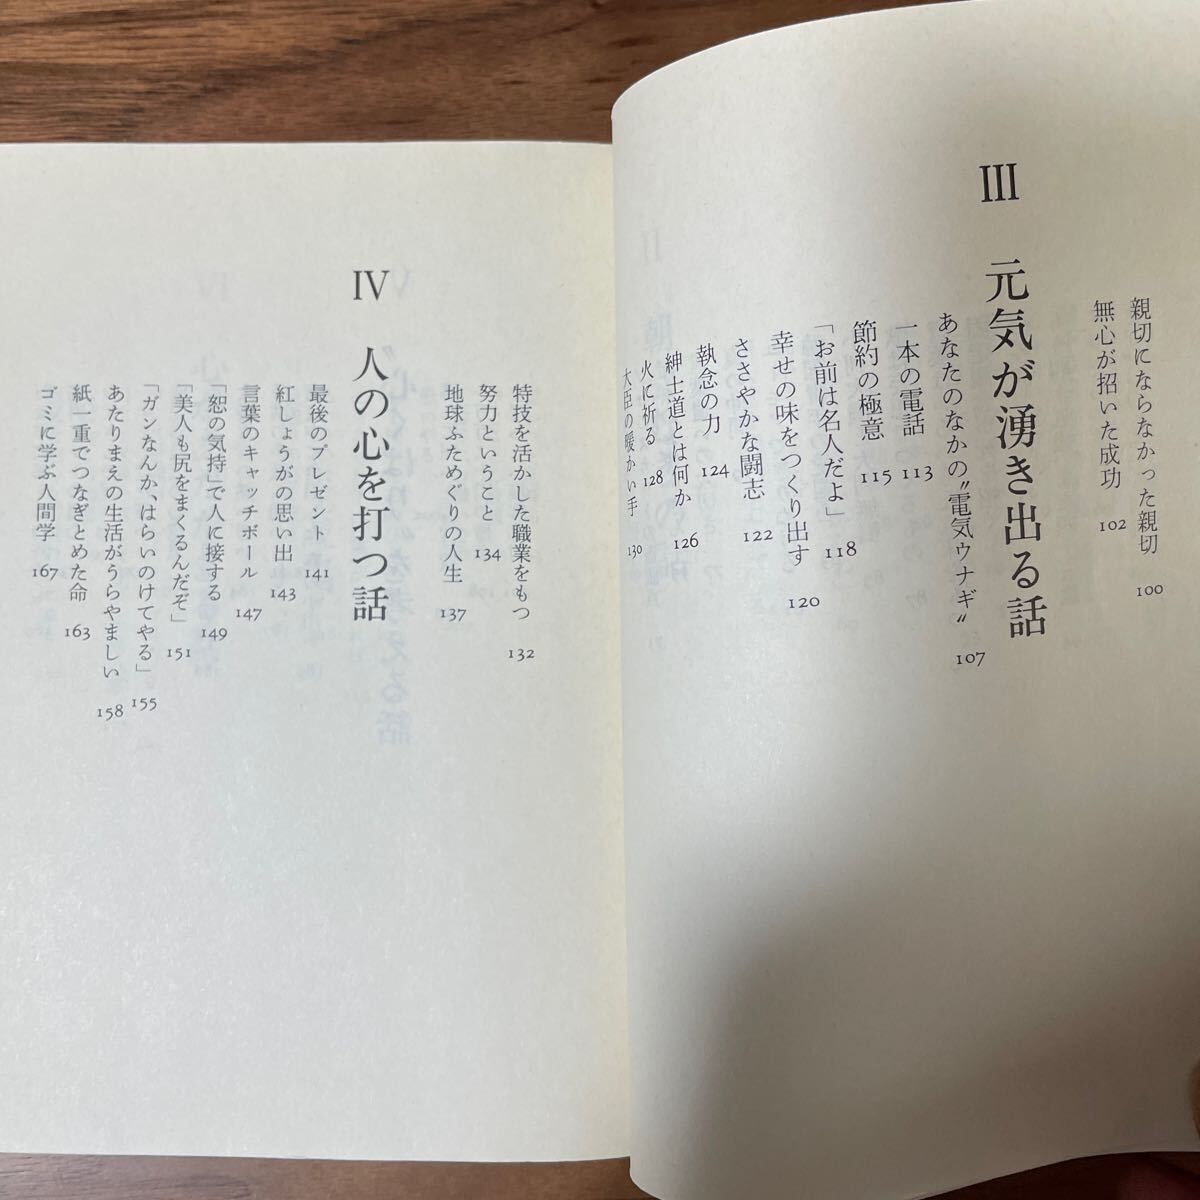 親切にならなかった親切 100
無心が招いた成功 102
III 元気が湧き出る話
あなたのなかの〝電気ウナギ〟 107
一本の電話 113
節約の極意 115
「お前は名人だよ」 118
幸せの味をつくり出す 120
ささやかな闘志 122
執念の力 124
紳士道とは何か 126
火に祈る 128
大臣の暖かい手 130
特技を活かした職業をもつ 132
努力ということ 134
地球ふためぐりの人生 137
IV 人の心を打つ話
最後のプレゼント 141
紅しょうがの思い出 143
言葉のキャッチボール 147
「恕の気持」で人に接する 149
「美人も尻をまくるんだぞ」 151
「ガンなんか、はらいのけてやる」 155
あたりまえの生活がうらやましい 158
紙一重でつなぎとめた命 163
ゴミに学ぶ人間学 167